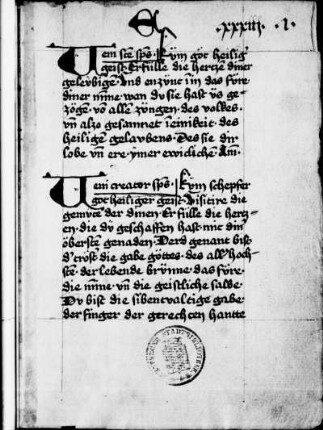 .xxxiii . 1 .
Ueni scē sps. Kūm got heilig
geist. Erfülle die hertzē diner
geleubigen. Vnd enzünt in in das füre
diner mine wan du sie hast vs ge-
zögē. vō allē zungen des volkes.
vn̄ alzo gesamnet in einikeit. des
heiligē gelaubens. Des sie dir
lobe vn̄ ere ymer ewicliche Am̄.
Ueni creator sps. Kūm schepfer
got heiliger geist. Visitire die
gemüte der dinen. Erfülle die hertz-
en. die du geschaffen hast. mit din
öberstē genaden. Der du genant bist
d' trost die gabe gottes. des all' hoch-
stē. der lebende brunne das füre.
die mine. vn̄ die geistliche salbe
Du bist die sibentvaltige gabe
der finger der gerechten hantte